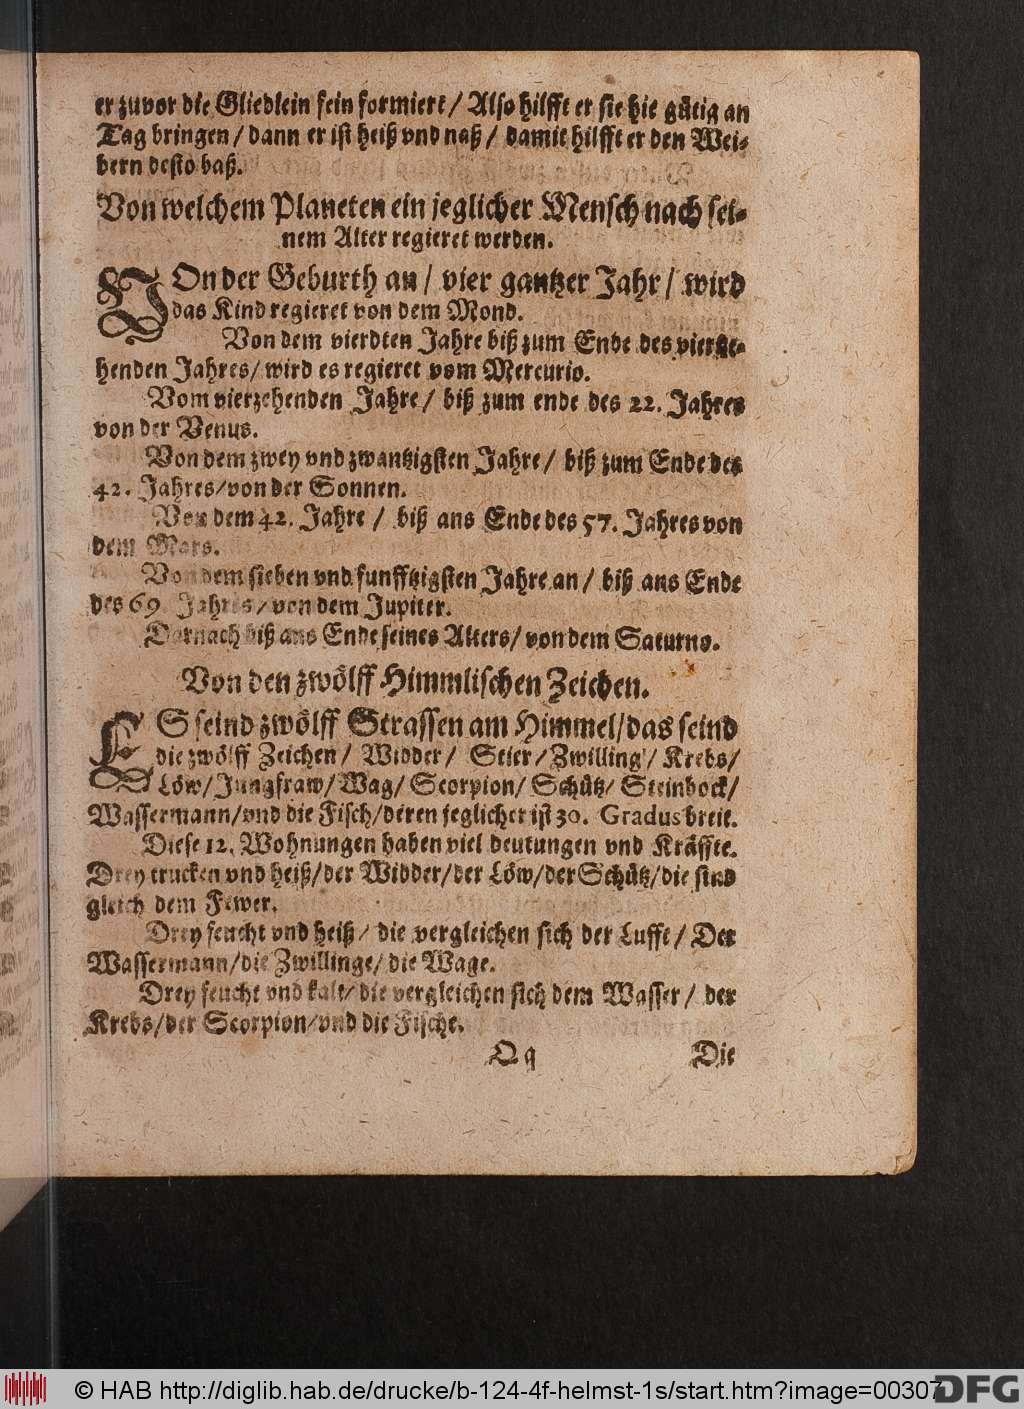 er zuvor die Gliedlein fein formiert / Also hilfft er sie hie gütig an
Tag bringen / dann er ist heiß vnd naß / damit hilfft er den Wei-
bern desto baß.
Von welchem Planeten ein jeglicher Mensch nach sei-
nem Alter regieret werden.
VOn der Geburth an / vier gantzer Jahr / wird
das Kind regieret von dem Mond.
Von dem vierdten Jahre biß zum Ende des vierze-
henden Jahres / wird es regieret vom Mercurio.
Vom vierzehenden Jahre / biß zum ende des 22. Jahres
von der Venus.
Von dem zwey vnd zwantzigsten Jahre / biß zum Ende des
42. Jahres / von der Sonnen.
Von dem 42. Jahre / biß ans Ende des 57. Jahres von
dem Mars.
Von dem sieben vnd funfftzigsten Jahre an / biß ans Ende
des 69 Jahres / von dem Jupiter.
Darnach biß ans Ende seines Alters / von dem Saturno.
Von den zwölff Himmlischen Zeichen.
ES seind zwölff Strassen am Himmel / das seind
die zwölff Zeichen / Widder / Stier / Zwilling / Krebs /
Löw / Jungfraw / Wag / Scorpion / Schütz / Steinbock /
Wassermann / vnd die Fisch / deren jeglicher ist 30. Gradus breit.
Diese 12. Wohnungen haben viel deutungen vnd Kräffte.
Drey trucken vnd heiß / der Widder / der Löw / der Schütz / die sind
gleich dem Fewer.
Drey feucht vnd heiß / die vergleichen sich der Lufft / Der
Wassermann / die Zwillinge / die Wage.
Drey feucht vnd kalt / die vergleichen sich dem Wasser / der
Krebs / der Scorpion / vnd die Fische.
Q q Die
© HAB http://diglib.hab.de/drucke/b-124-4f-helmst-1s/start.htm?image=00307
DFG